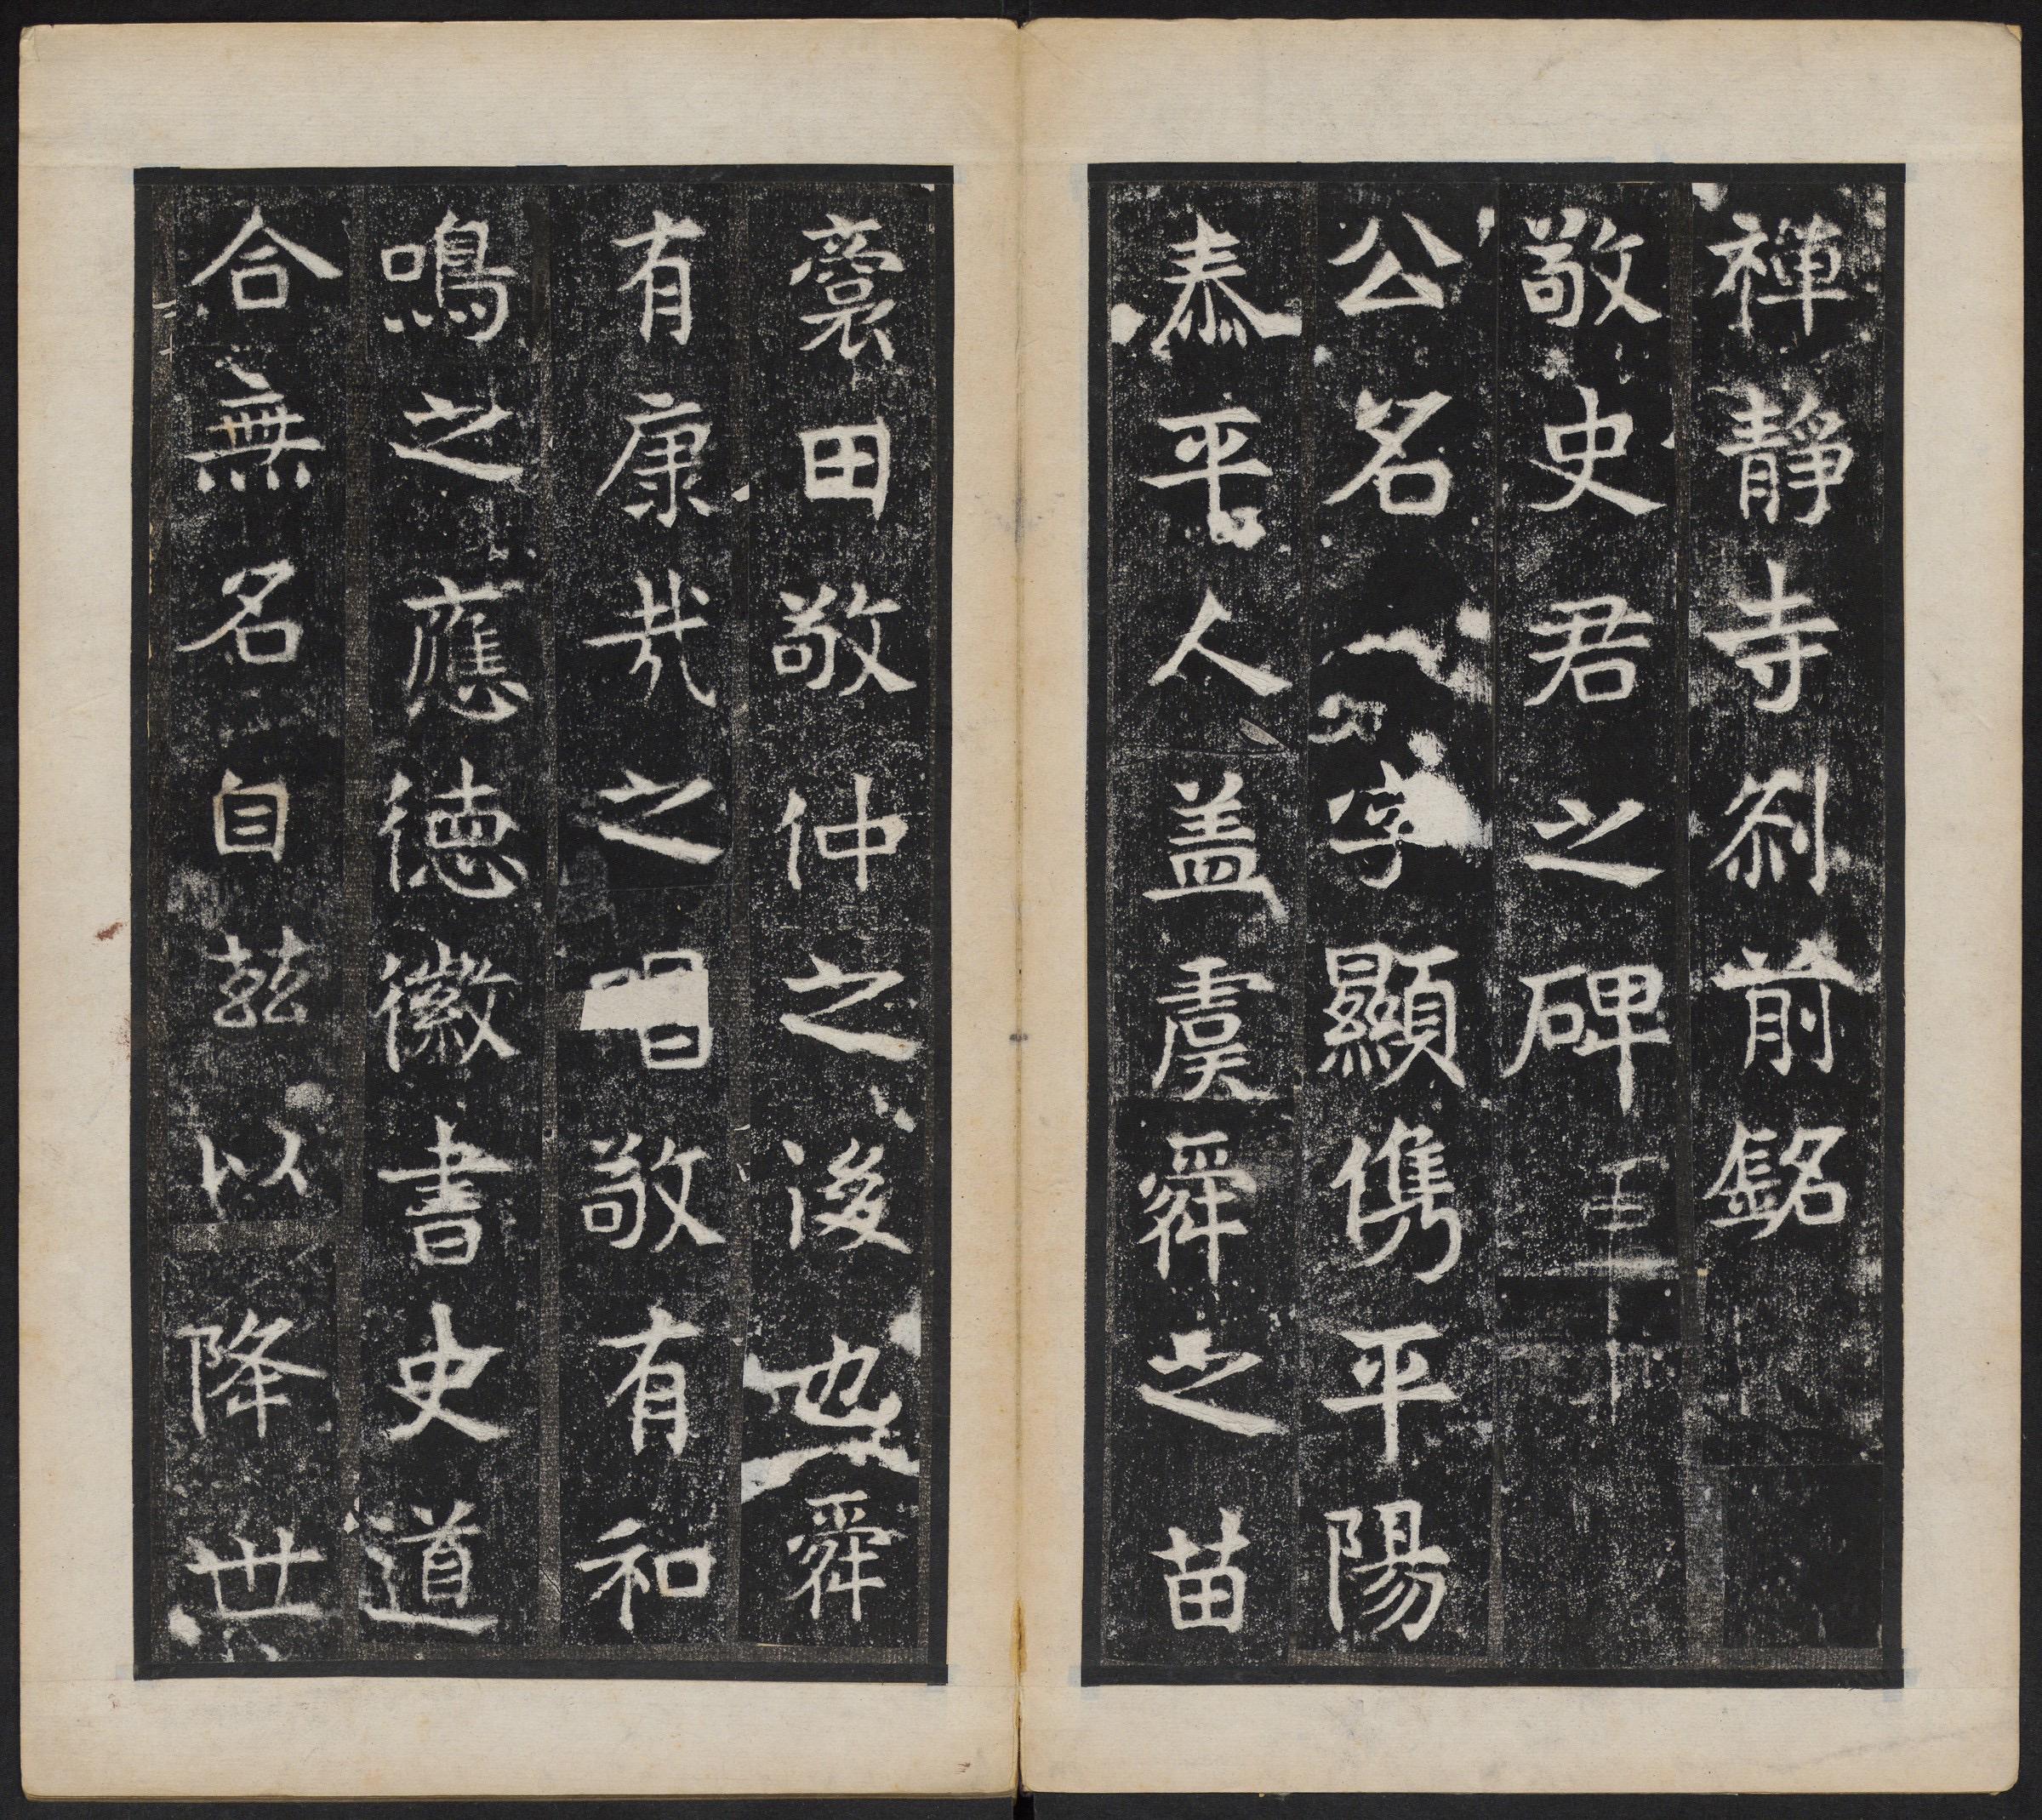 禪靜寺刹前銘
敬史君之碑
公名字顯儁平陽
泰平人蓋虞舜之苗
裔田敬仲之後也舜
有康哉之唱敬有和
鳴之應德徽書史道
合無名自茲以降世